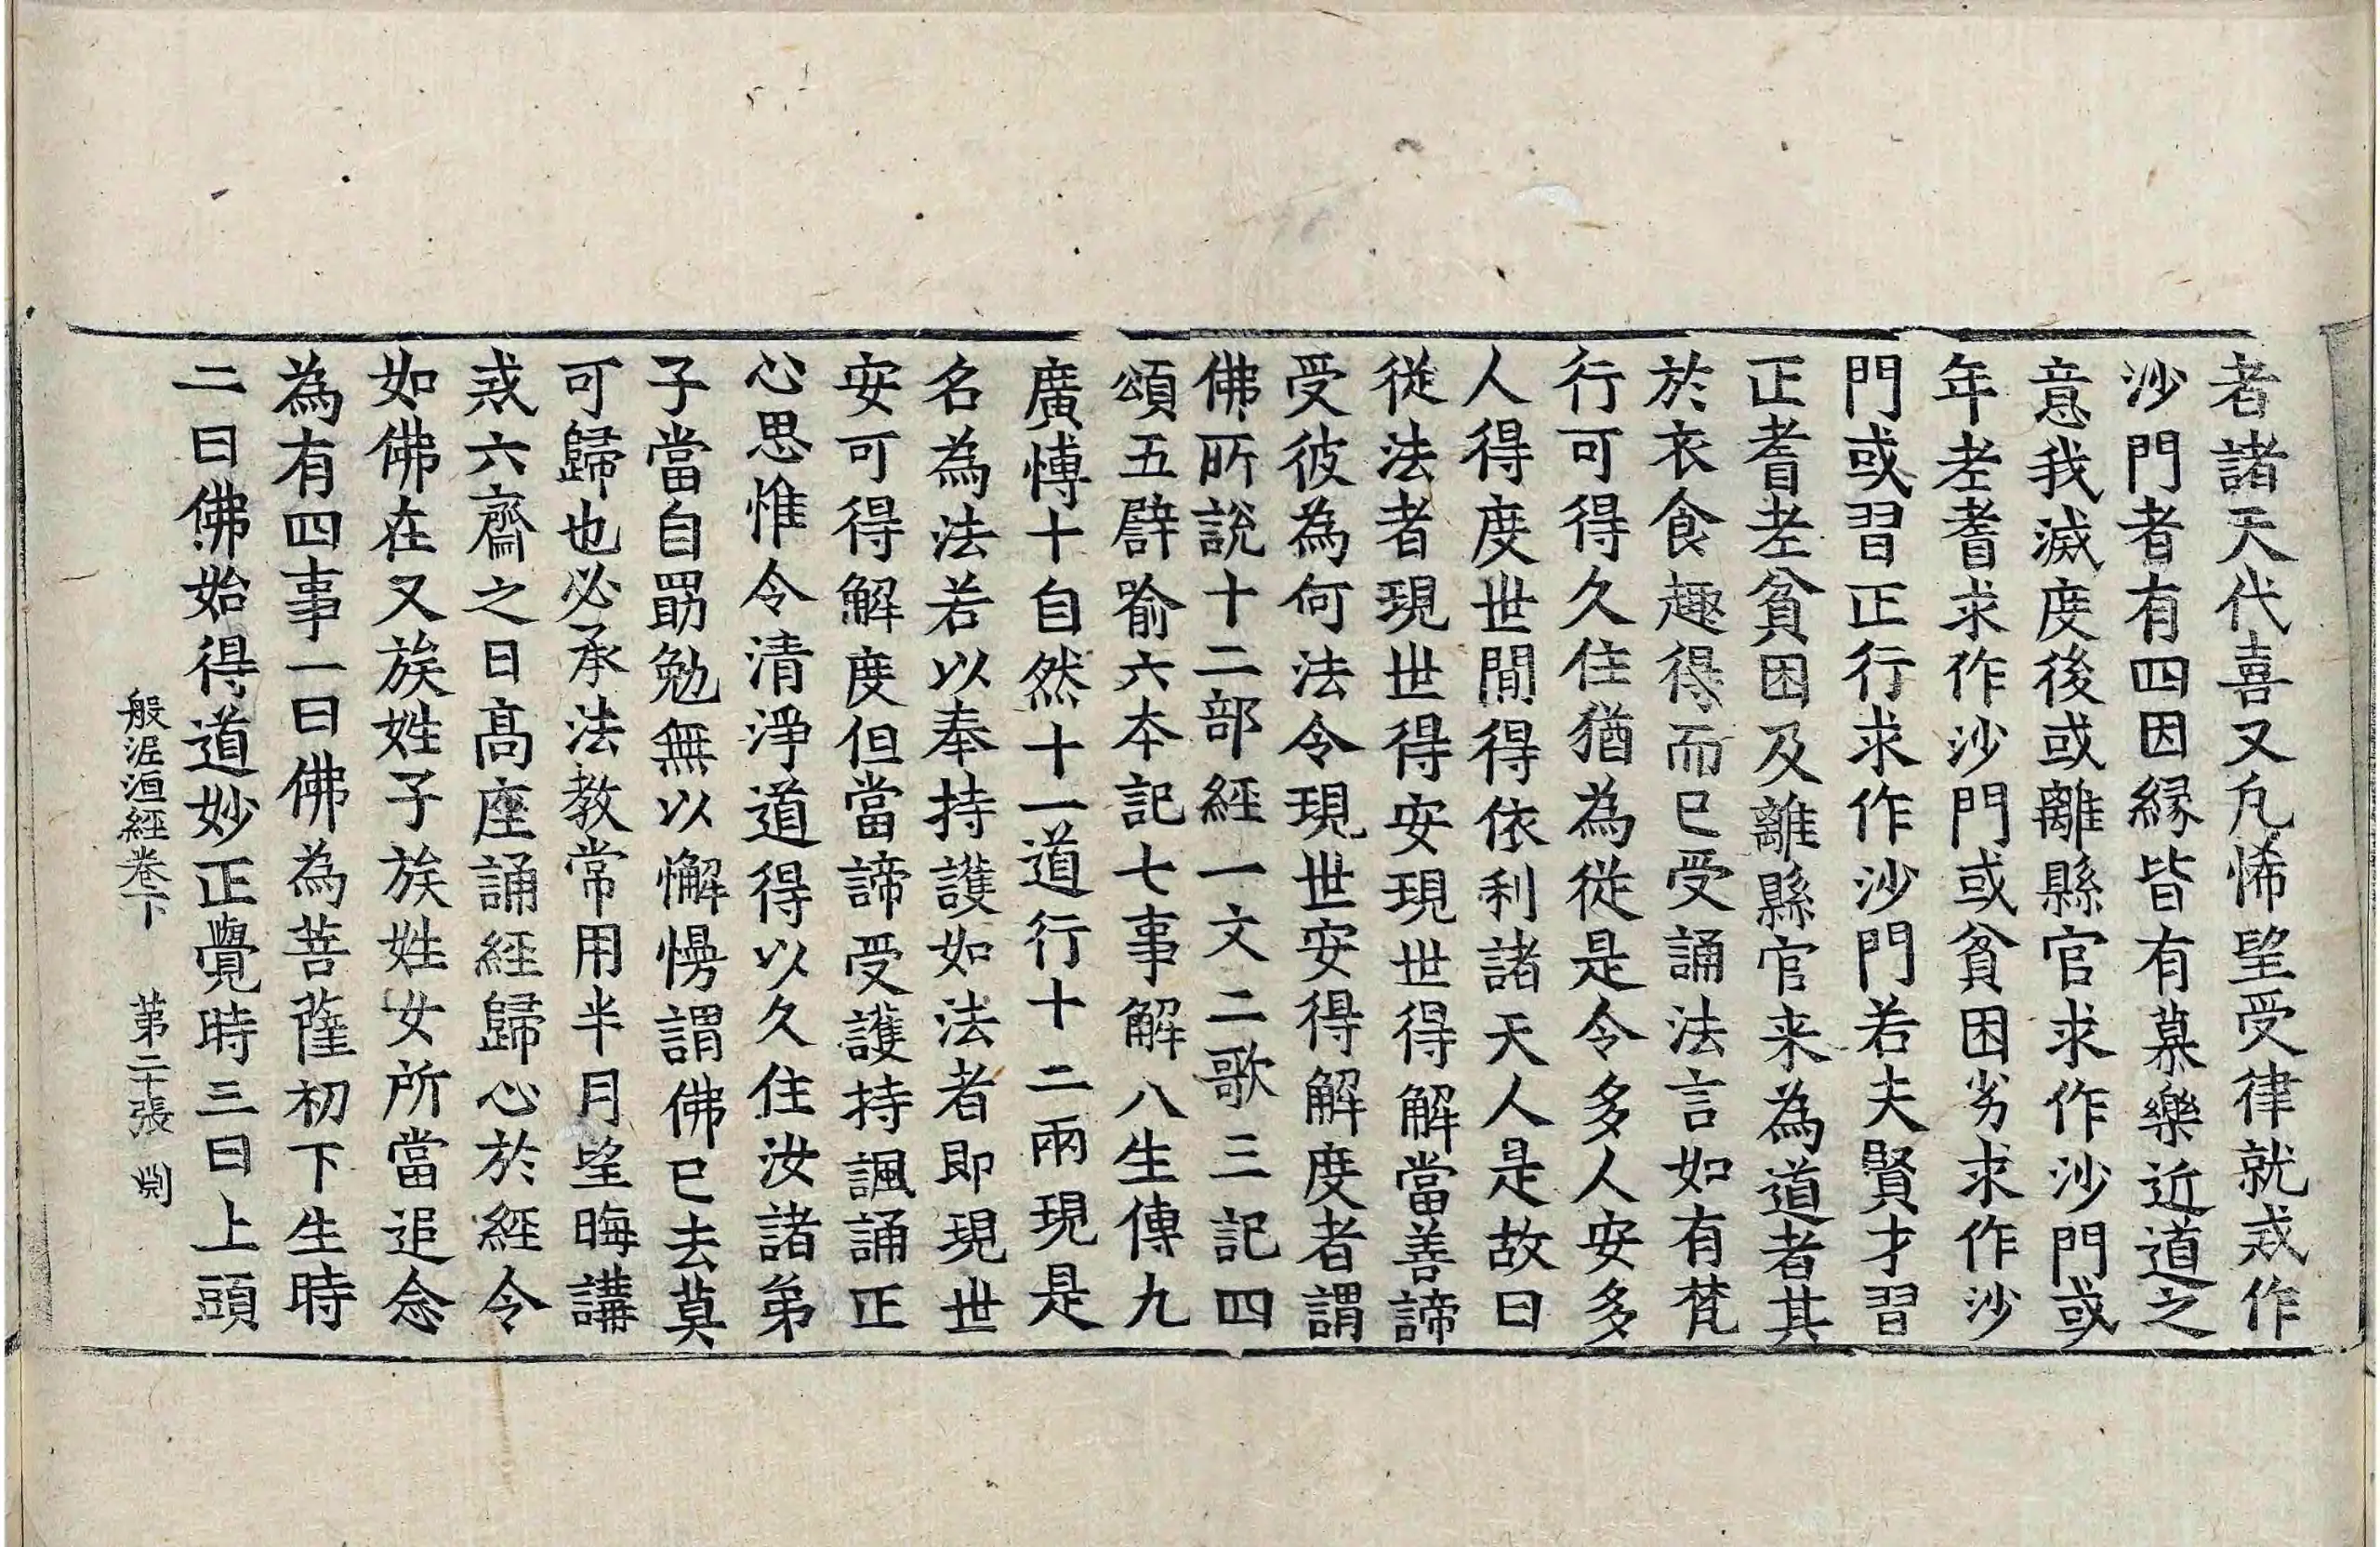 者諸天代喜又凡悕望受律就戒作
沙門者有四因緣皆有慕樂近道之
意我滅度後或離縣官求作沙門或
年老耆求作沙門或貧困劣求作沙
門或習正行求作沙門若夫賢才習
正耆老貧困及離縣官来為道者其
於衣食趣得而已受誦法言如有梵
行可得久住猶為從是令多人安多
人得度世間得依利諸天人是故曰
從法者現世得安現世得解當善諦
受彼為何法令現世安得解度者謂
佛所說十二部經一文二歌三記四
頌五譬喻六本記七事解八生傳九
廣博十自然十一道行十二兩現是
名為法若以奉持護如法者即現世
安可得解度但當諦受護持諷誦正
心思惟令清淨道得以久住汝諸弟
子當自勗勉無以懈慢謂佛已去莫
可歸也必承法教常用半月望晦講
戒六齋之日高座誦經歸心於經令
如佛在又族姓子族姓女所當追念
為有四事一曰佛為菩薩初下生時
二曰佛始得道妙正覺時三曰上頭
般泥洹經卷下　第二十張